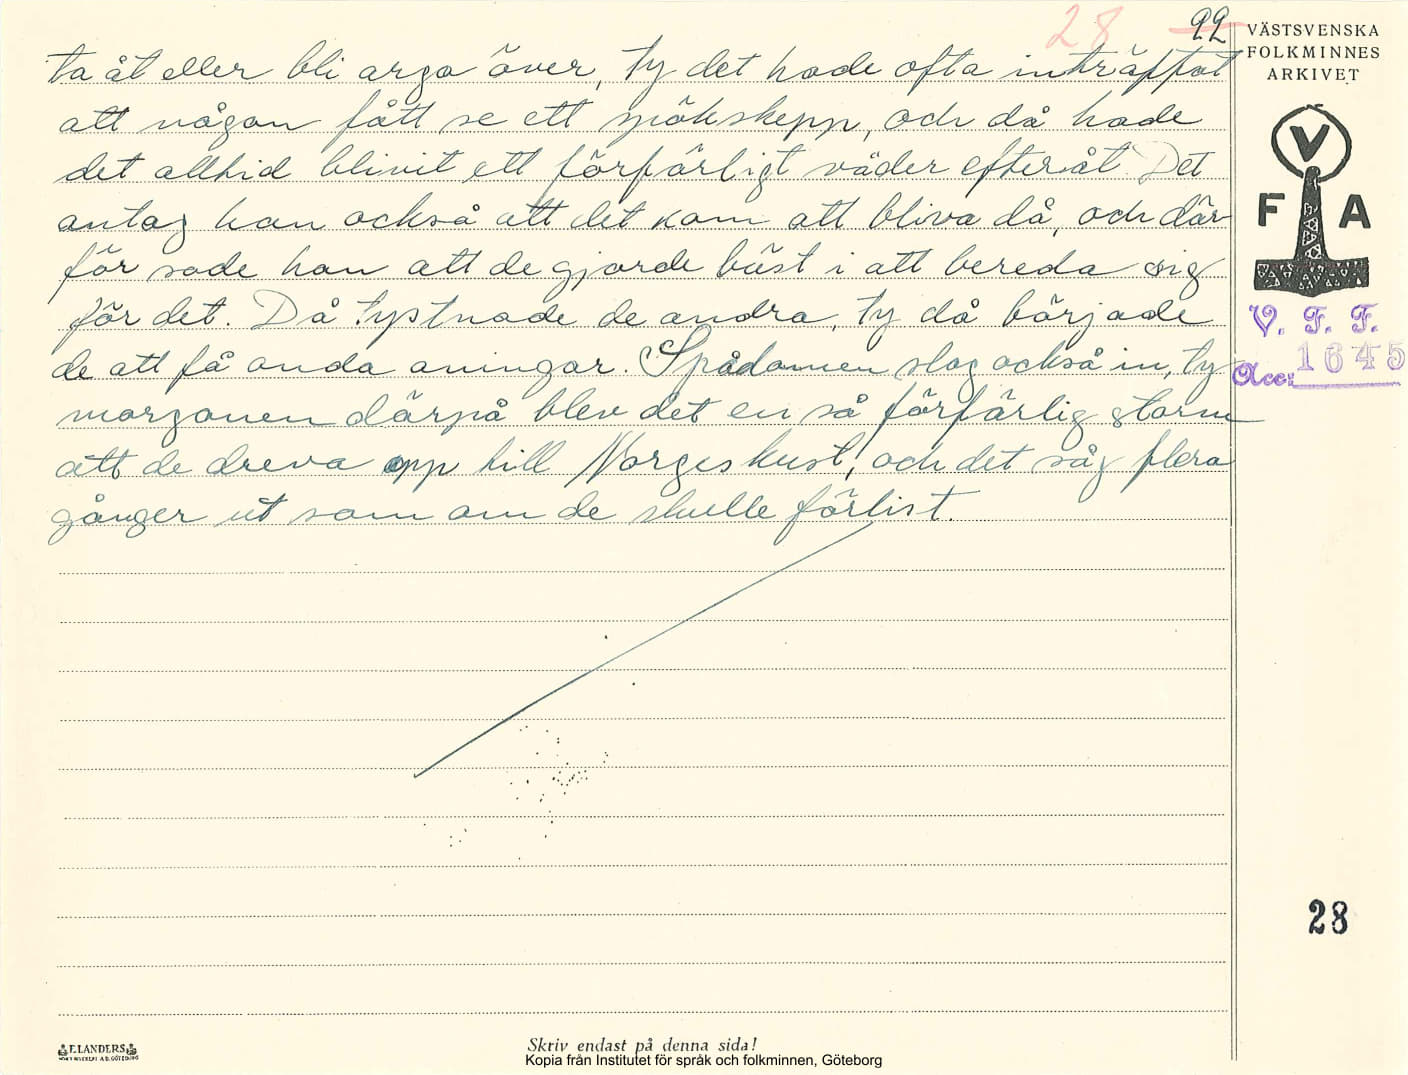 28 22
ta åt eller bli arga över, ty det hade ofta inträffat
att någon fått se ett spökskepp, och då hade
det alltid blivit ett förfärligt väder efteråt. Det
antog han också att det kom att bliva då, och där-
för sade han att de gjorde bäst i att bereda sig
för det. Då tystnade de andra, ty då började
de att få onda aningar. Spådomen slog också in, ty
morgonen därpå blev det en så förfärlig storm
att de dreva opp till Norges kust, och det såg flera
gånger ut som om de skulle förlist.
VÄSTSVENSKA
FOLKMINNES
ARKIVET
V
F A
V. F. F.
Acc: 1645
28
ELANDERS
Skriv endast på denna sida!
Kopia från Institutet för språk och folkminnen, Göteborg